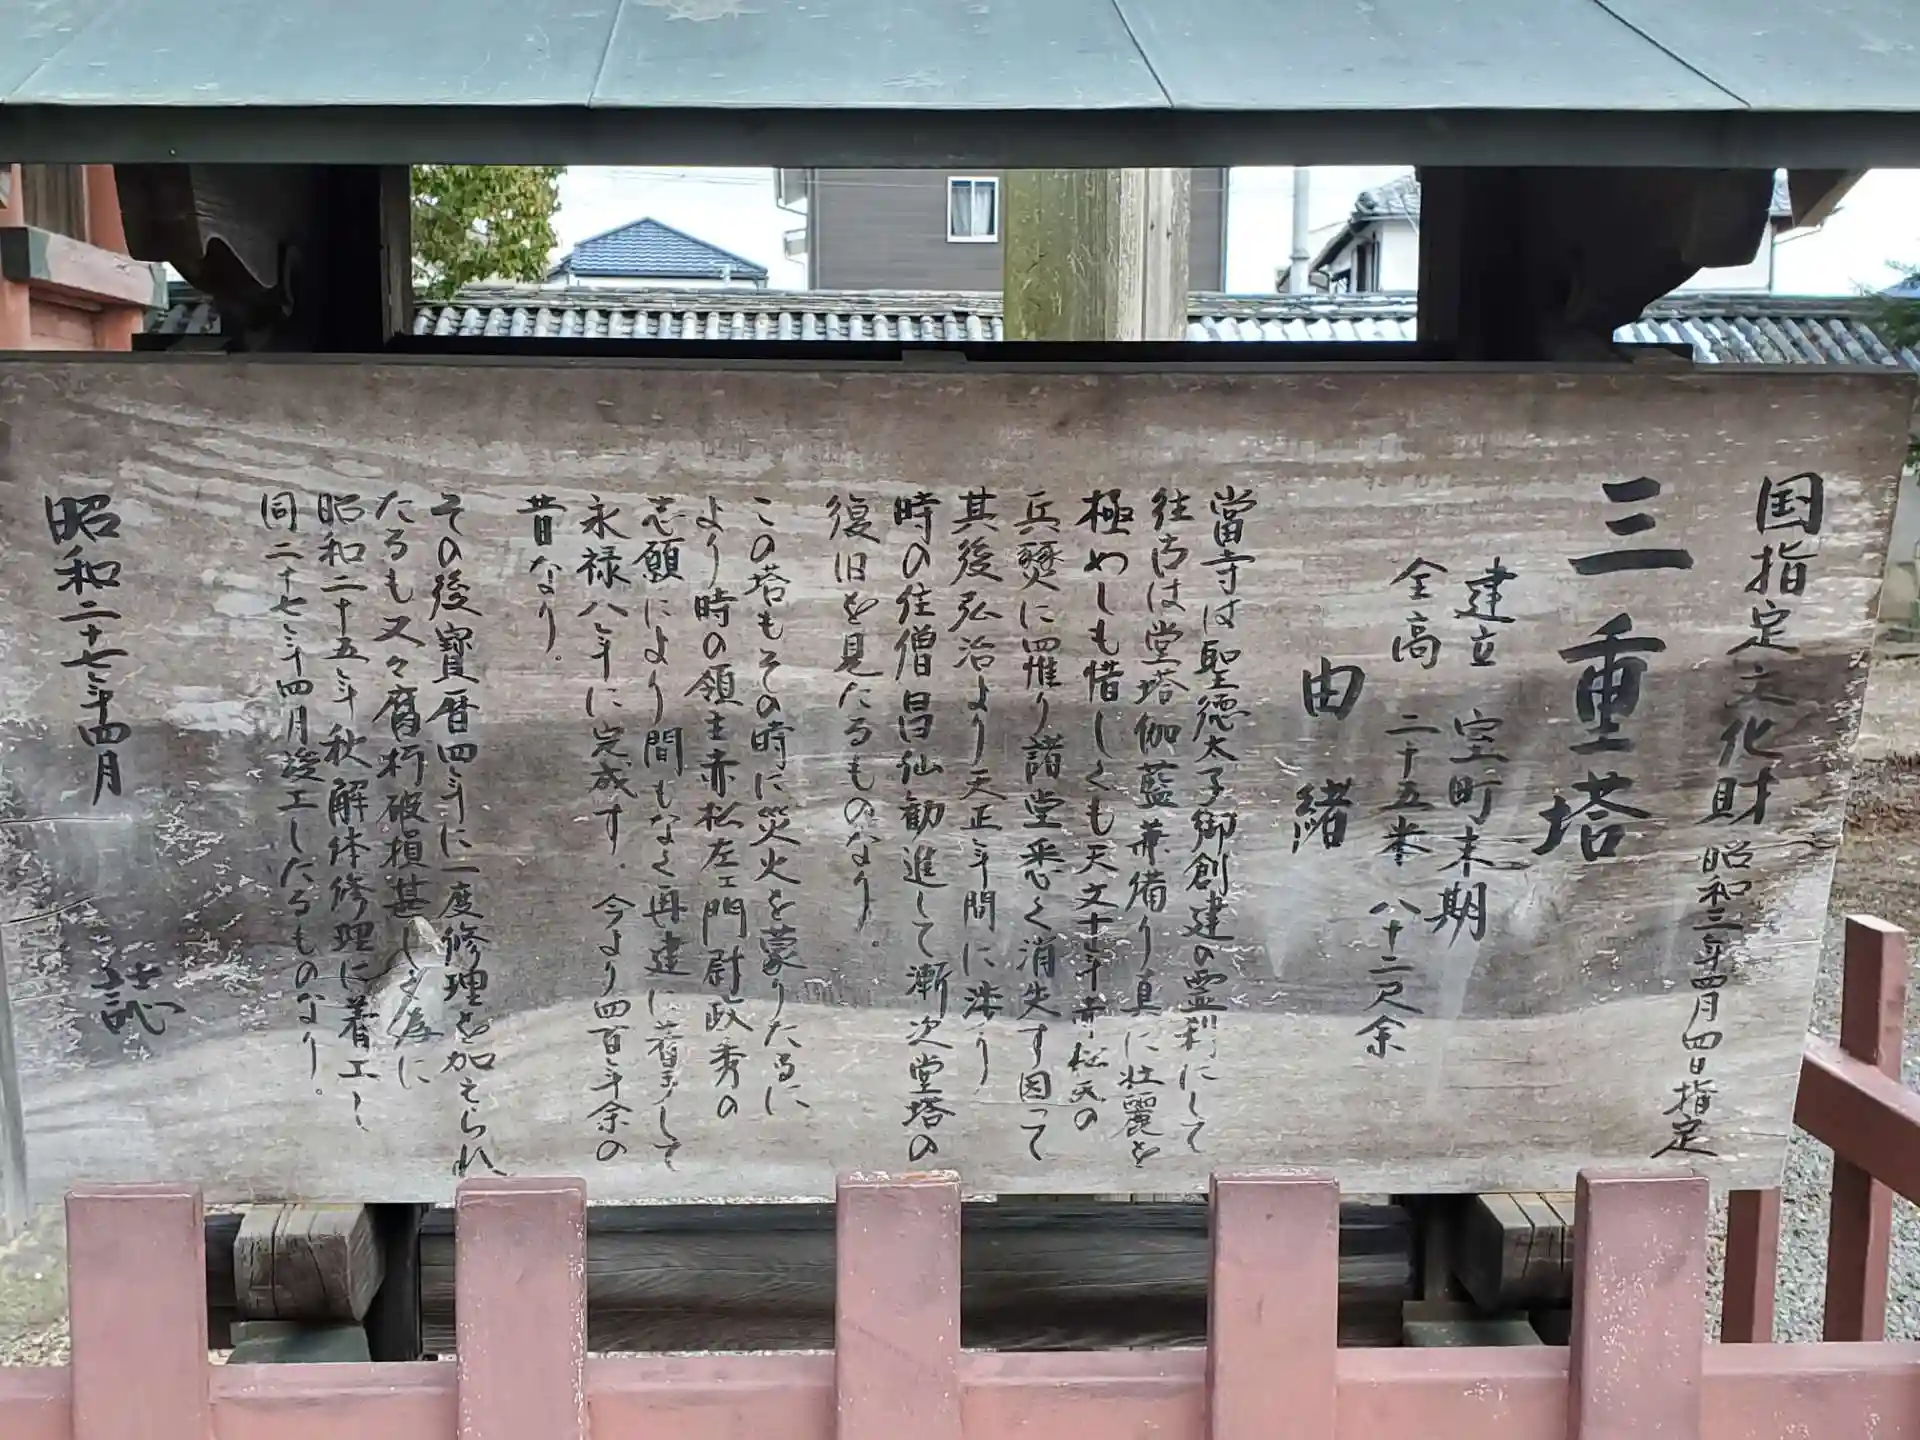 国指定文化財 昭和三年四月四日指定
三重塔
建立 室町末期
全高 二十五米 八十二尺余
由緒
當寺は聖徳太子御創建の霊刹にして
往古は堂塔伽藍兼備り真に壮麗を
極めしも惜しくも天文十年赤松氏の
兵燹に罹り諸堂悉く消失す因って
其後弘治より天正年間に渉り
時の住僧昌仙勧進して漸次堂塔の
復旧を見たるものなり。
この塔もその時に災火を蒙りたるに
より時の領主赤松左ェ門尉政秀の
志願により間もなく再建に着手して
永禄八年に完成す。今より四百年余の
昔なり。
その後寳暦四年に一度修理を加えられ
たるも又々腐朽破損甚しき為に
昭和二十五年秋解体修理に着工し
同二十七年四月竣工したるものなり。
昭和二十七年四月
誌